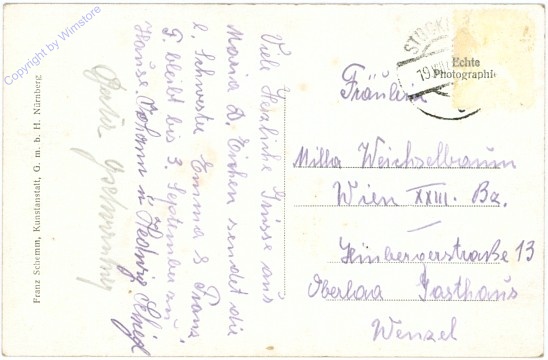 Copyright by Wimstore
Franz Schemm, Kunstanstalt, G. m. b. H. Nürnberg
Viele Herzliche Grüsse aus
Maria D. Eichen sendet die
l. Schwester Emma & Franz
F. bleibt bis 3. September zu
Hause. Johann u Hedwig
Echte
Photographie
Fräulein
Milla Weichselbraum
Wien XXIII. Bz.
Himbergerstraße 13
Oberlaa Gasthaus
Wenzel